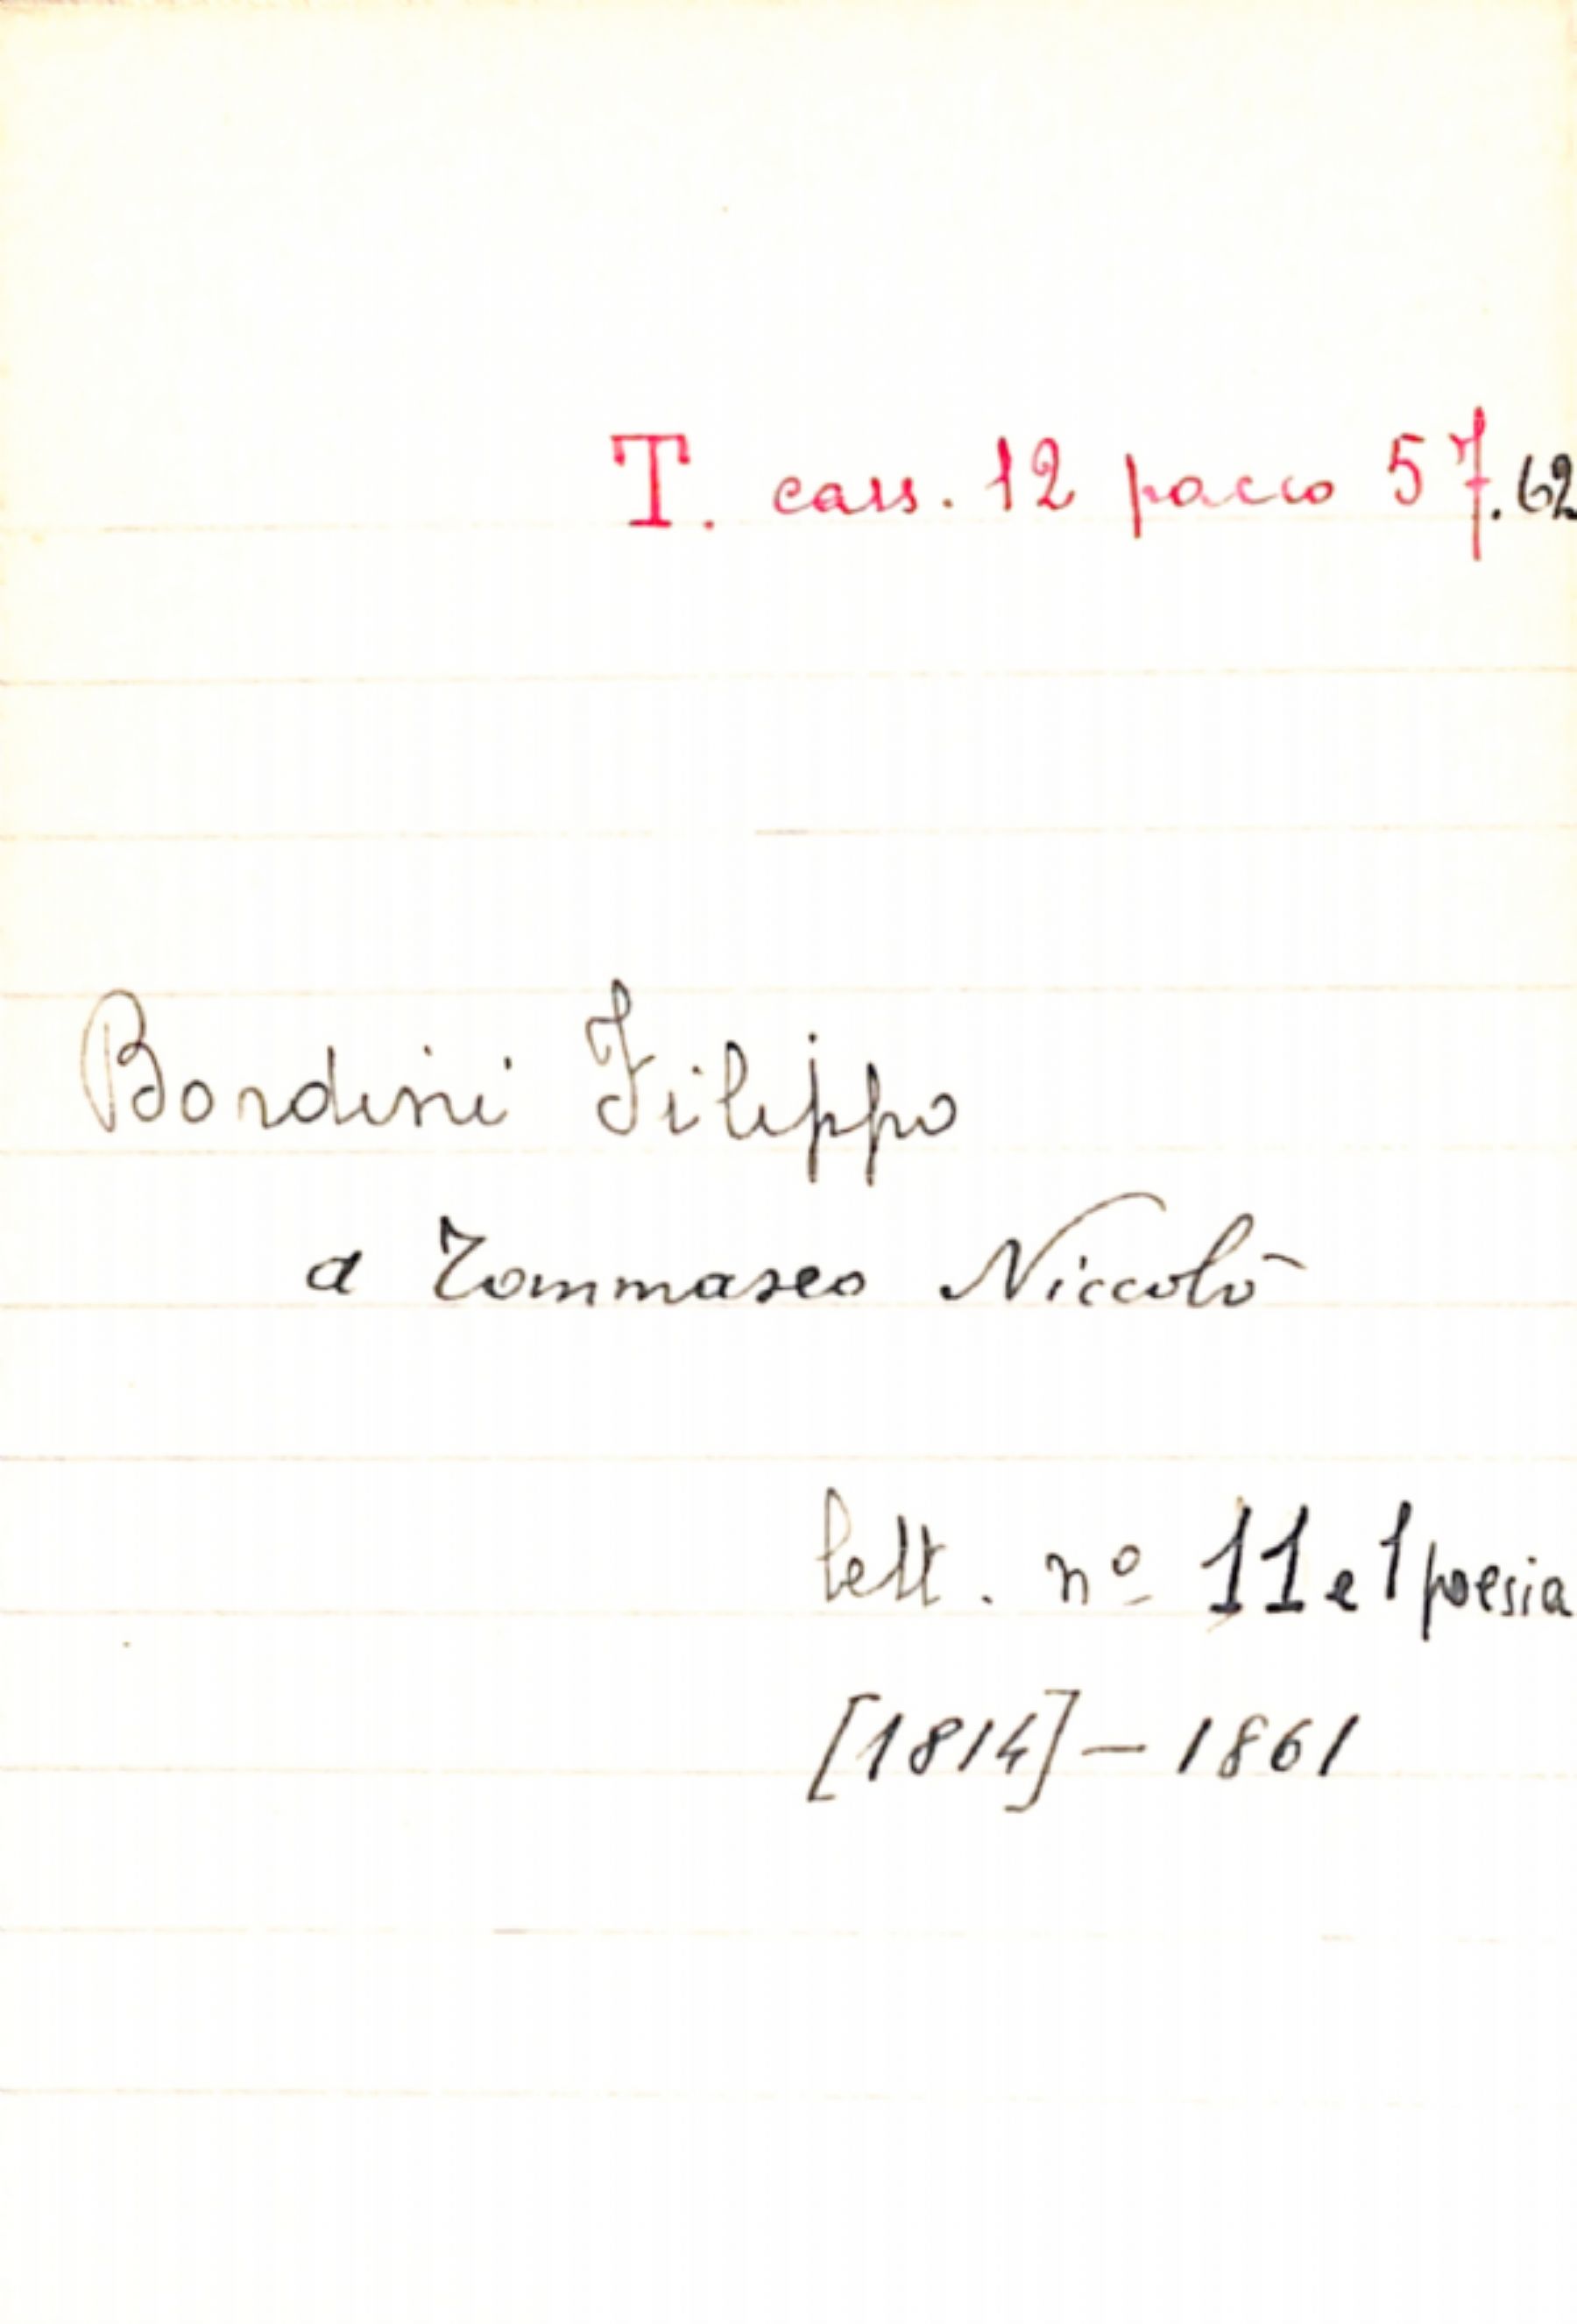 T. cass. 12 pacco 57.62
Bordini Filippo
a Tommaseo Niccolò
lett. nº 11 e 1 poesia
[1814] – 1861